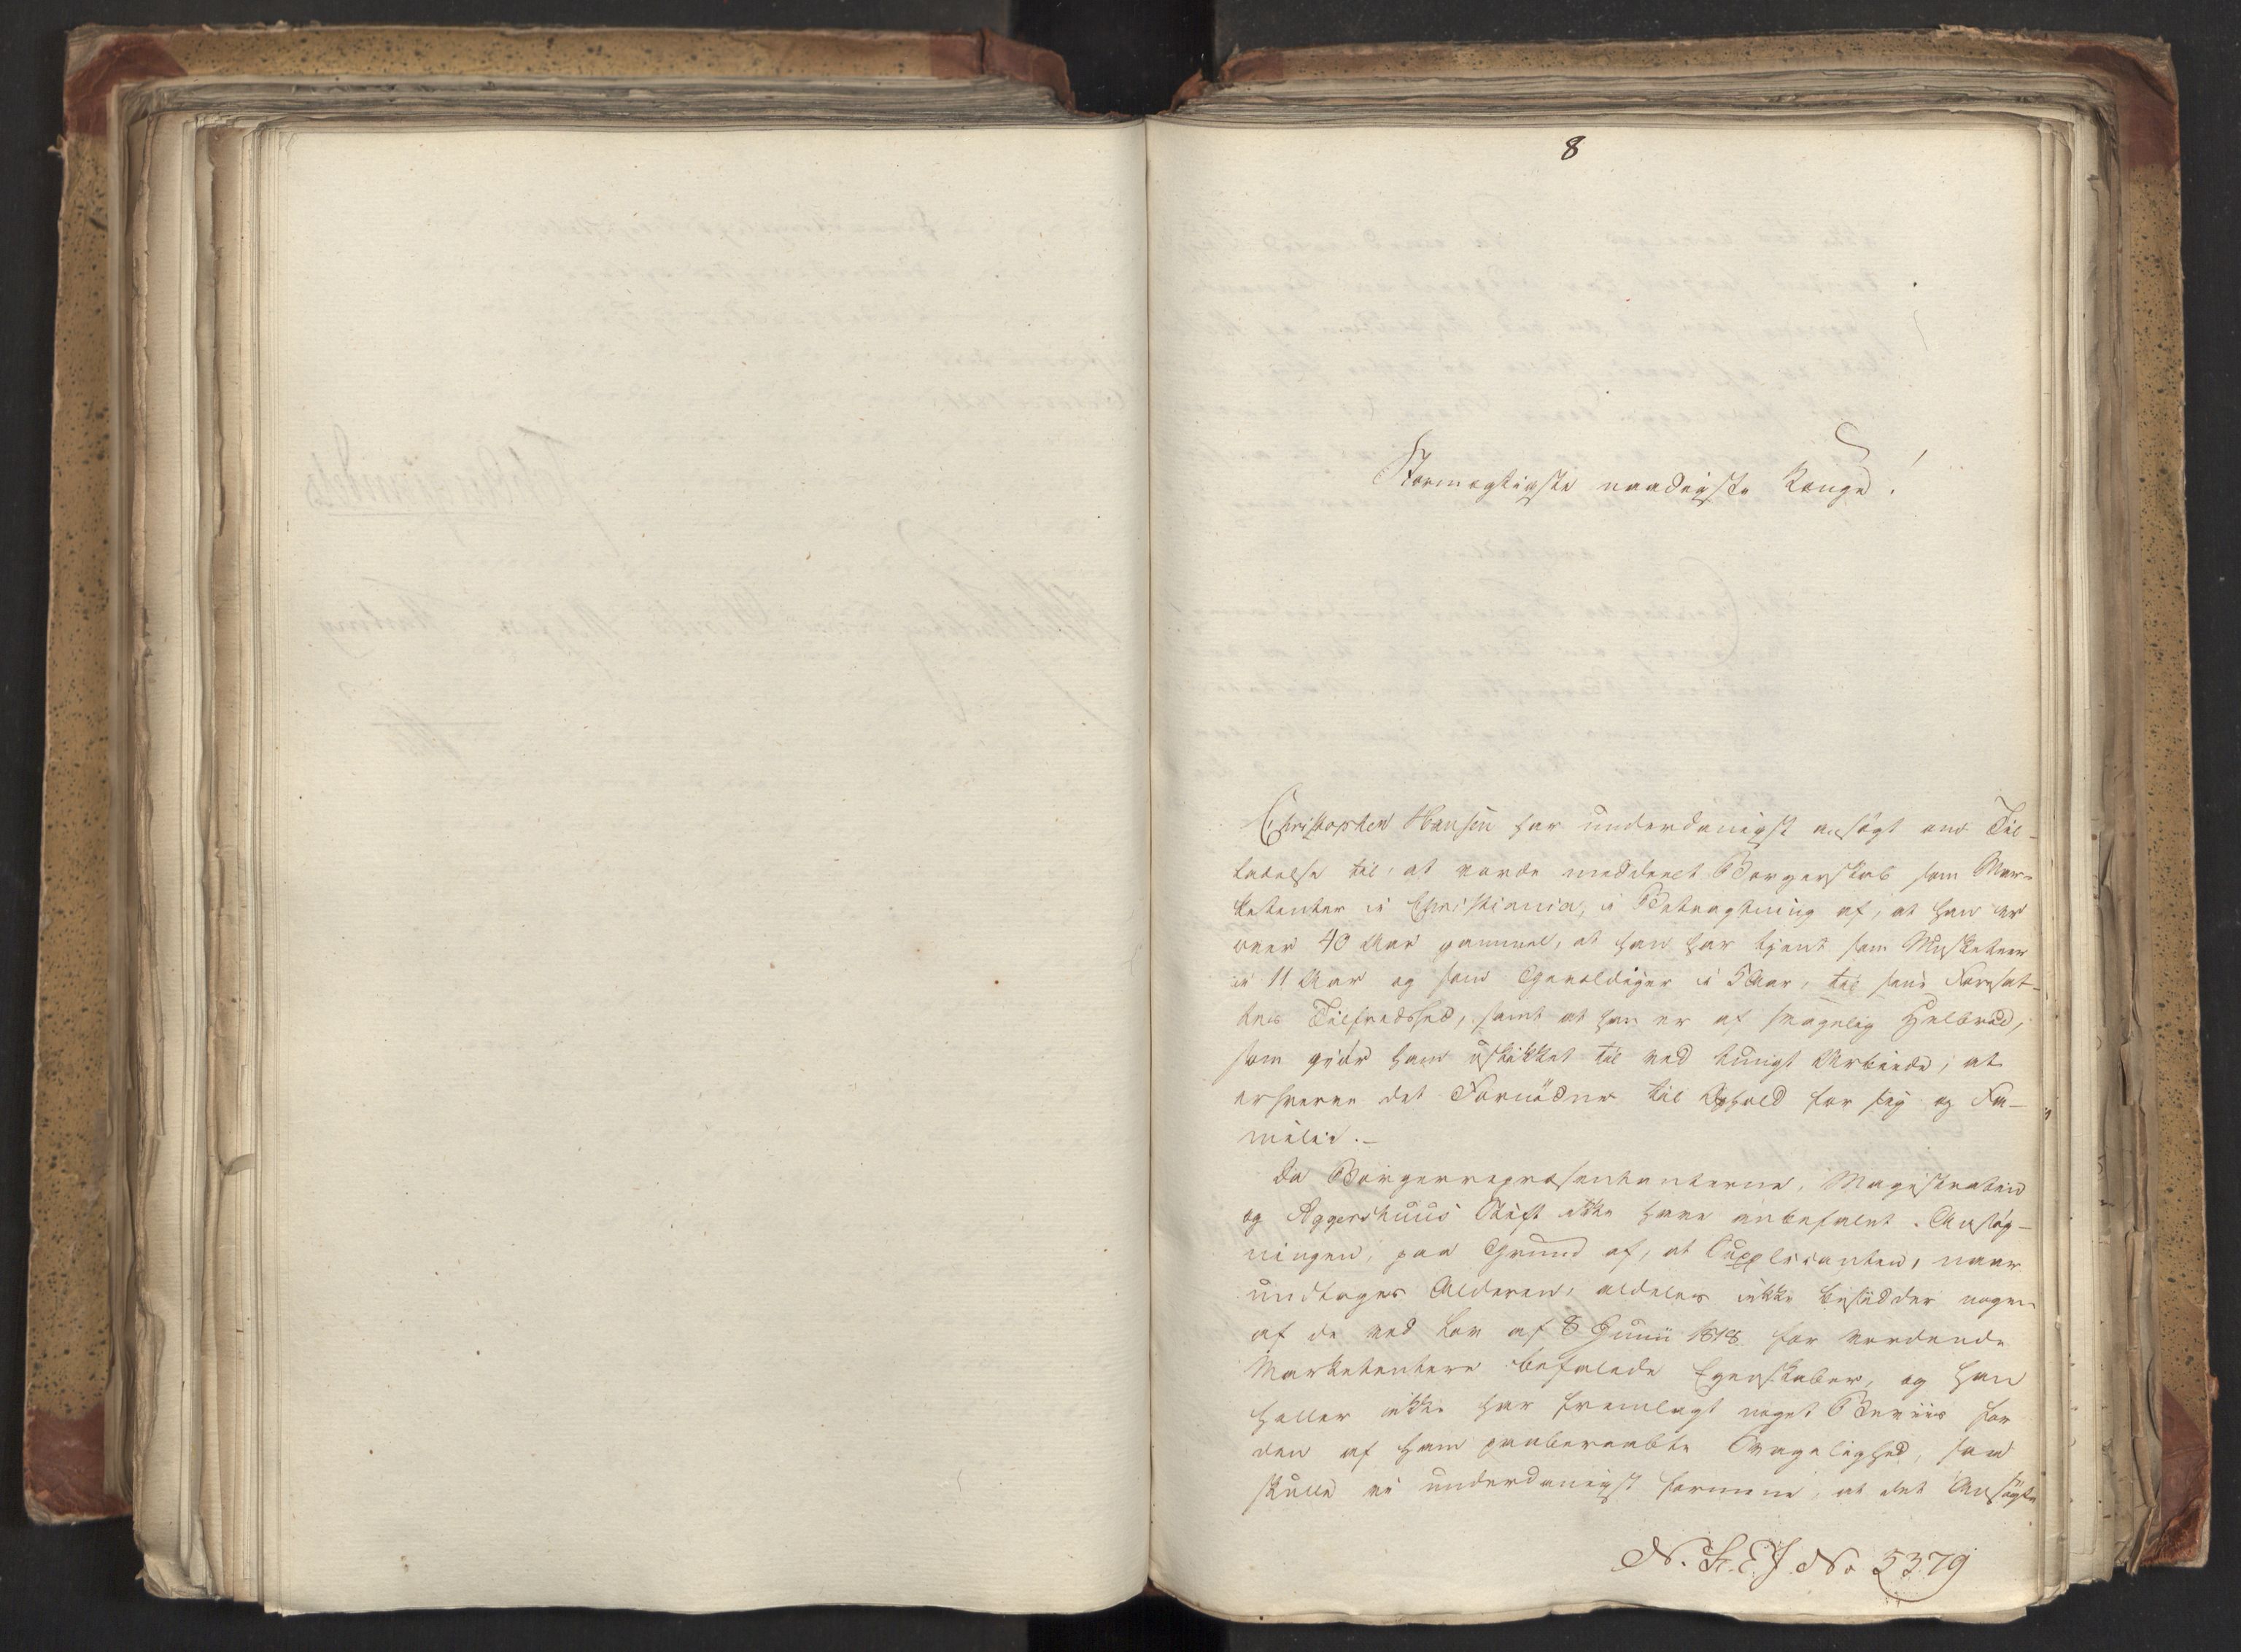 8
Stormægtigste naadigste Konge!
Christopher Hansen har underdanigst ansøgt om Til-
ladelse til, at vorde meddeelt Borgerskab som Mar-
ketenter i Christiania, i Betragtning af, at han er
over 40 Aar gammel, at han har tjent som Musketeer
i 11 Aar og som Gevaldiger i 5 Aar, til sine Foresat-
tes Tilfredshed, samt at han er af svagelig Helbred,
som gjør ham uskikket til ved tungt Arbeide, at
erhverve det Fornødne til Ophold for sig og Fa-
milie.-
Da Borgerrepræsentanterne, Magistraten
og Aggershuus Stift ikke have anbefalet Ansøg-
ningen, paa Grund af, at Supplicanten, naar
undtages Alderen, aldeles ikke besidder nogen
af de ved Lov af 8 Junii 1818 for vordende
Marketentere befalede Egenskaber, og han
heller ikke har fremlagt noget Beviis for
den af ham paaberaabte Svagelighed, saa
skulle vi underdanigst formene, at det Ansøgte
N. S. E. J. No 5379